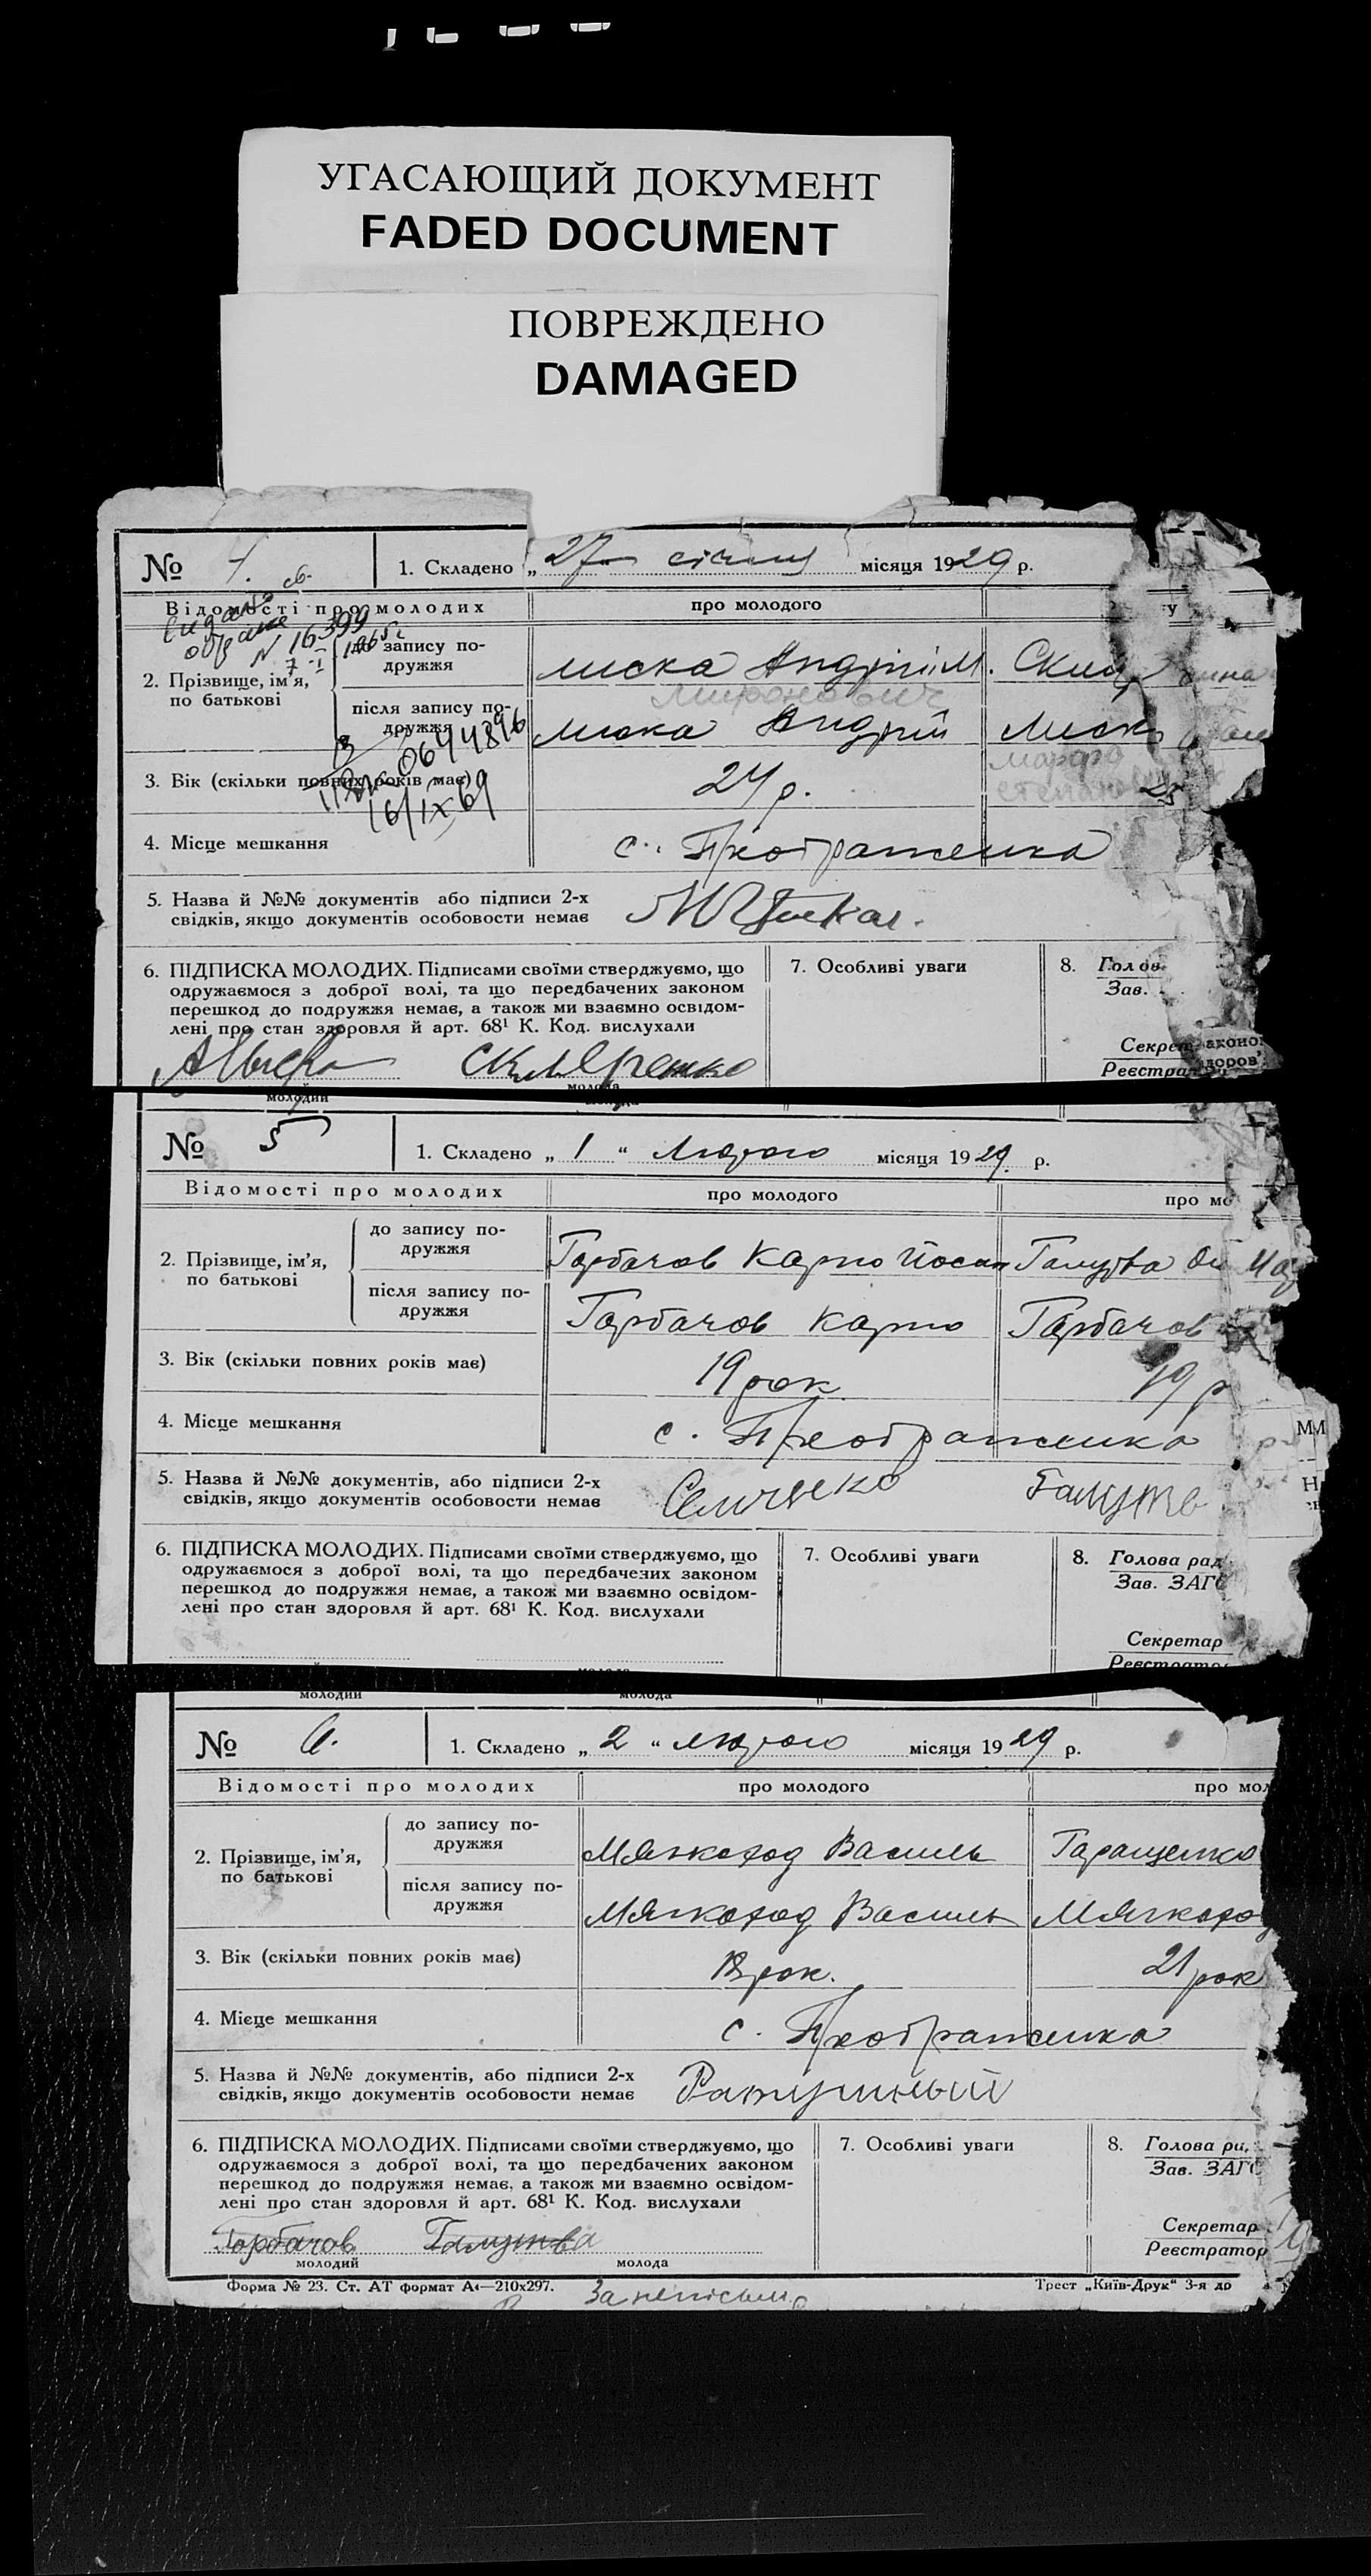 УГАСАЮЩИЙ ДОКУМЕНТ
FADED DOCUMENT
ПОВРЕЖДЕНО
DAMAGED
№ 4. 1. Складено „ 27 січня місяця 1929 р.
Відомості про молодих про молодого
N 16399
2. Прізвище, ім'я, по батькові
до запису подружжя Миска Андрій М. 
Миронович
після запису подружжя Миска Андрій
0644896
3. Вік (скільки повних років має) 24 р.
16/IX 69
4. Місце мешкання с. Преображенка
5. Назва й №№ документів або підписи 2-х
свідків, якщо документів особовости немає
6. ПІДПИСКА МОЛОДИХ. Підписами своїми стверджуємо, що 7. Особливі уваги 8.
одружаємося з доброї волі, та що передбачених законом Зав.
перешкод до подружжя немає, а також ми взаємно освідом-
лені про стан здоровля й арт. 68¹ К. Код. вислухали
Скляренко
молодий молода
№ 5 1. Складено „ 1 “ Лютого місяця 1929 р.
Відомості про молодих про молодого
2. Прізвище, ім'я, по батькові
до запису подружжя Горбачов Карпо Йосип Галутва
після запису подружжя Горбачов Карпо Горбачов
3. Вік (скільки повних років має) 19 рок 19 р
4. Місце мешкання с. Преображенка
5. Назва й №№ документів, або підписи 2-х
свідків, якщо документів особовости немає
6. ПІДПИСКА МОЛОДИХ. Підписами своїми стверджуємо, що 7. Особливі уваги 8. Голова рад
одружаємося з доброї волі, та що передбачених законом Зав. ЗАГС
перешкод до подружжя немає, а також ми взаємно освідом-
лені про стан здоровля й арт. 68¹ К. Код. вислухали
Секретар
молодий молода
№ 6. 1. Складено „ 2 “ лютого місяця 1929 р.
Відомості про молодих про молодого
2. Прізвище, ім'я, по батькові
до запису подружжя Мягкоход Василь Таращенко
після запису подружжя Мягкоход Василь Мягкохо
3. Вік (скільки повних років має) 21 рок
4. Місце мешкання с. Преображенка
5. Назва й №№ документів, або підписи 2-х
свідків, якщо документів особовости немає
6. ПІДПИСКА МОЛОДИХ. Підписами своїми стверджуємо, що 7. Особливі уваги 8. Голова
одружаємося з доброї волі, та що передбачених законом Зав. ЗАГС
перешкод до подружжя немає, а також ми взаємно освідом-
лені про стан здоровля й арт. 68¹ К. Код. вислухали
Секретар
Горбачов Галутва Реєстратор
молодий молода
Форма № 23. Ст. АТ формат А4—210х297. Трест „Київ-Друк“ 3-я